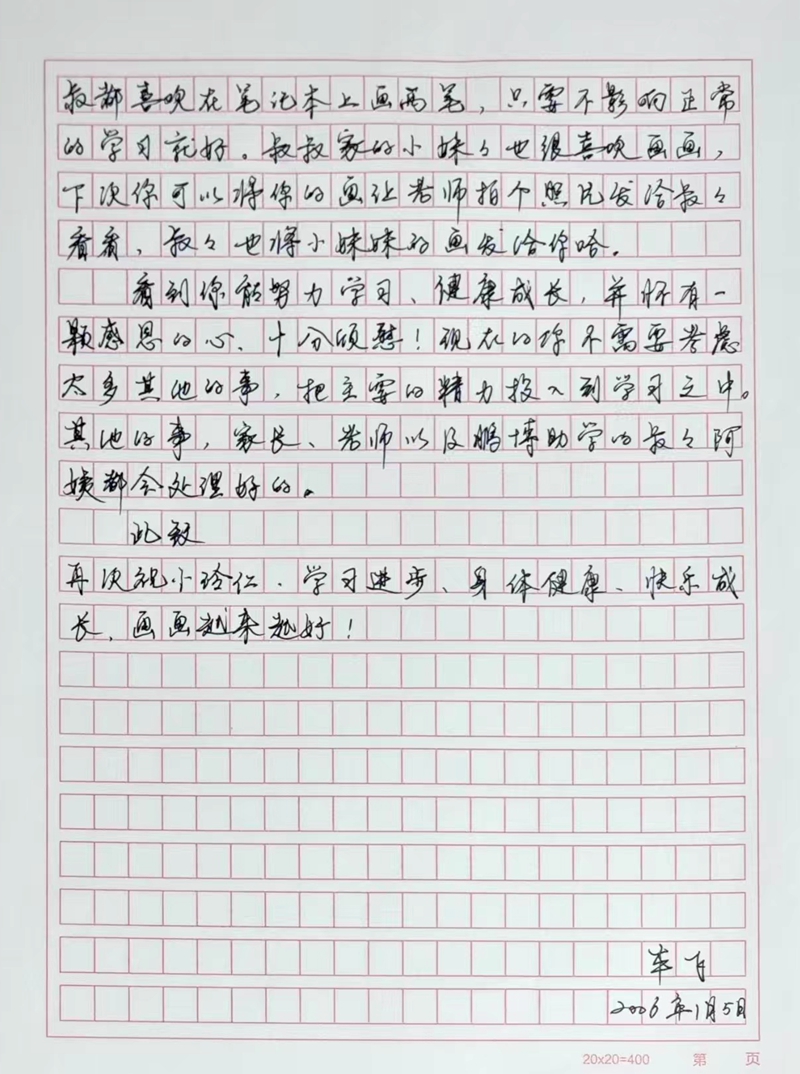 叔都喜欢在笔记本上画两笔，只要不影响正常
的学习就好。叔叔家的小妹々也很喜欢画画，
下次你可以将你的画让老师拍个照片发给叔々
看看，叔々也将小妹妹的画发给你哈。
看到你能努力学习、健康成长，并怀有一
颗感恩的心、十分欣慰！现在的你不需要考虑
太多其他的事，把主要的精力投入到学习之中。
其他的事，家长、老师以及鹏博助学的叔々阿
姨都会处理好的。
此致
再次祝小玲仁、学习进步、身体健康、快乐成
长，画画越来越好！
年1月5日
20x20=400 第 页